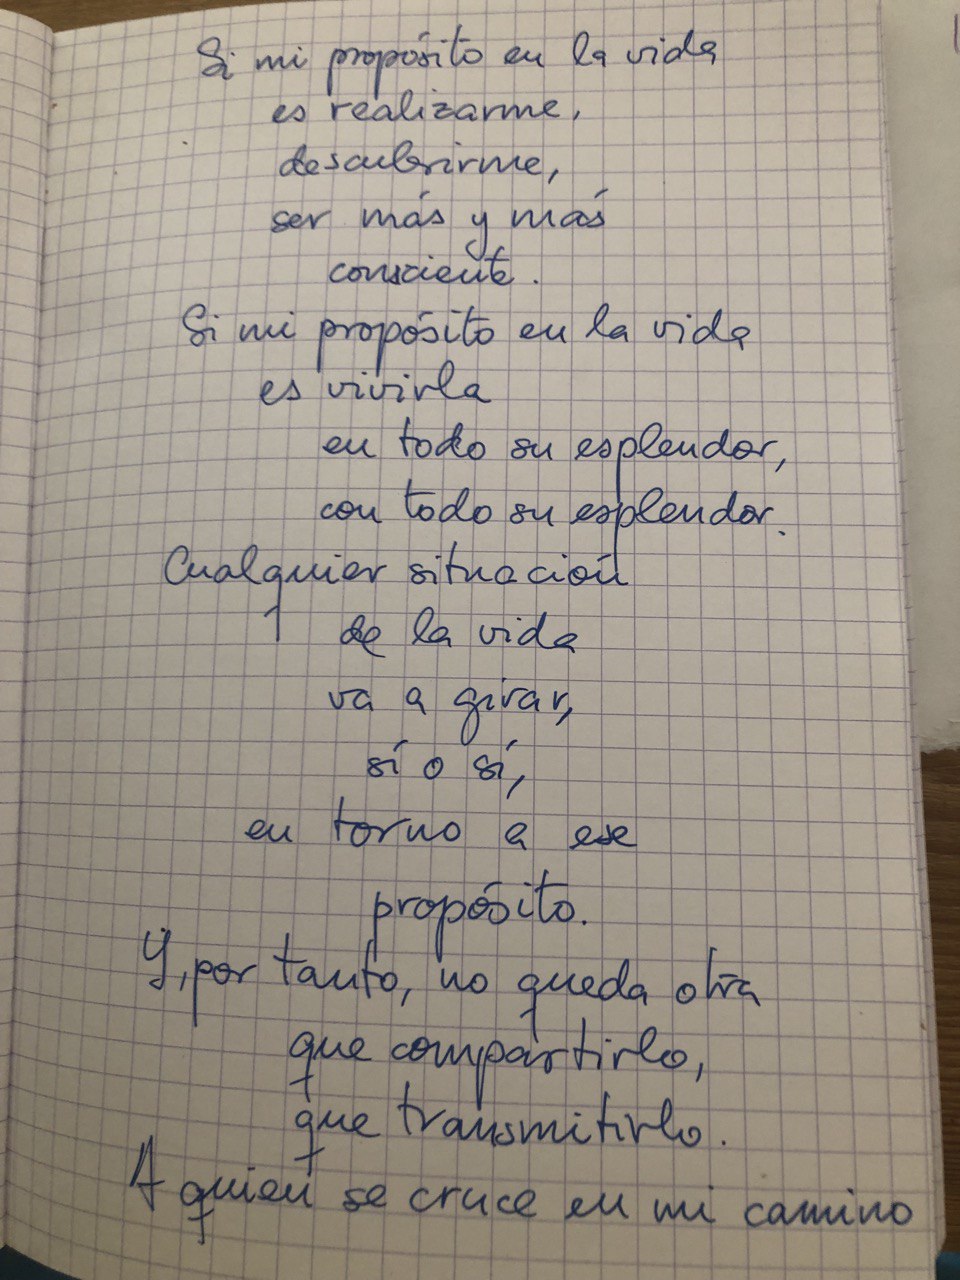 Si mi propósito en la vida
es realizarme,
descubrirme,
ser más y más
consciente.
Si mi propósito en la vida
es vivirla
en todo su esplendor,
con todo su esplendor.
Cualquier situación
de la vida
va a girar,
sí o sí,
en torno a ese
propósito.
Y, por tanto, no queda otra
que compartirlo,
que transmitirlo.
A quien se cruce en mi camino